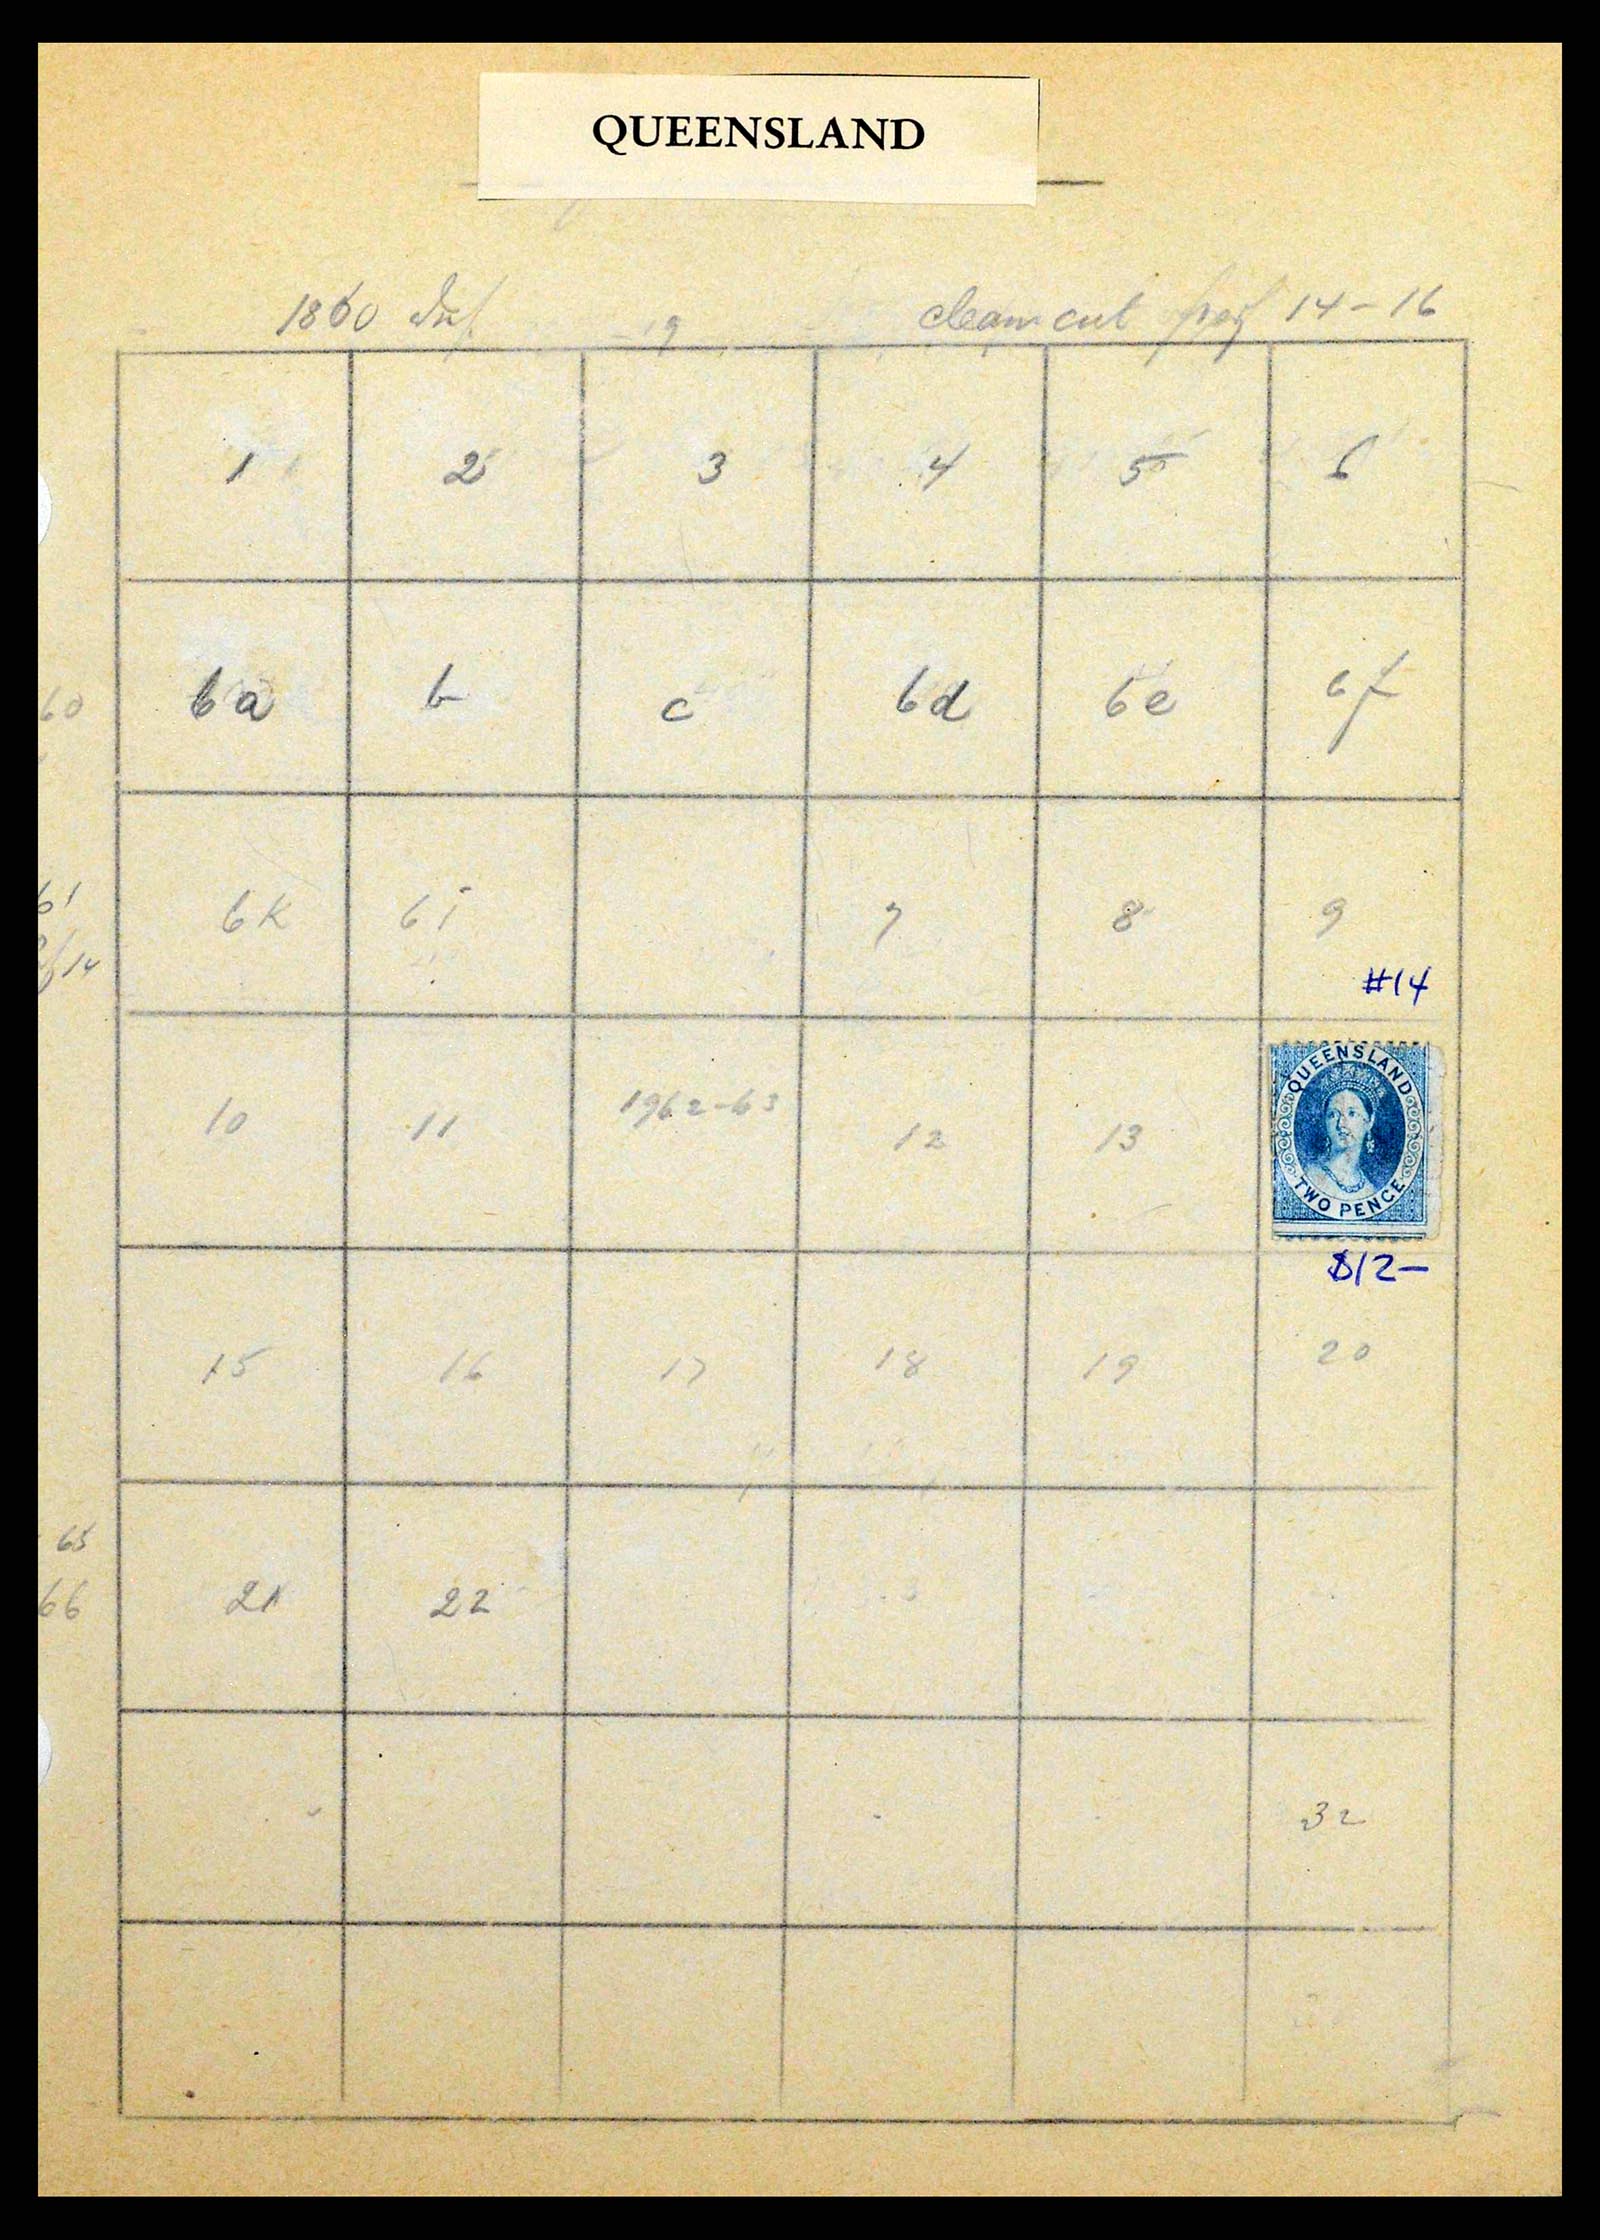 QUEENSLAND
1860
clean cut perf 14-16
1 2 3 4 5 6
60
6a b c 6d 6e 6f
61
6k 6i 7 8 9
14
#14
QUEENSLAND
TWO PENCE
10 11 1962-63 12 13
$12—
15 16 17 18 19 20
65
66
21 22
32